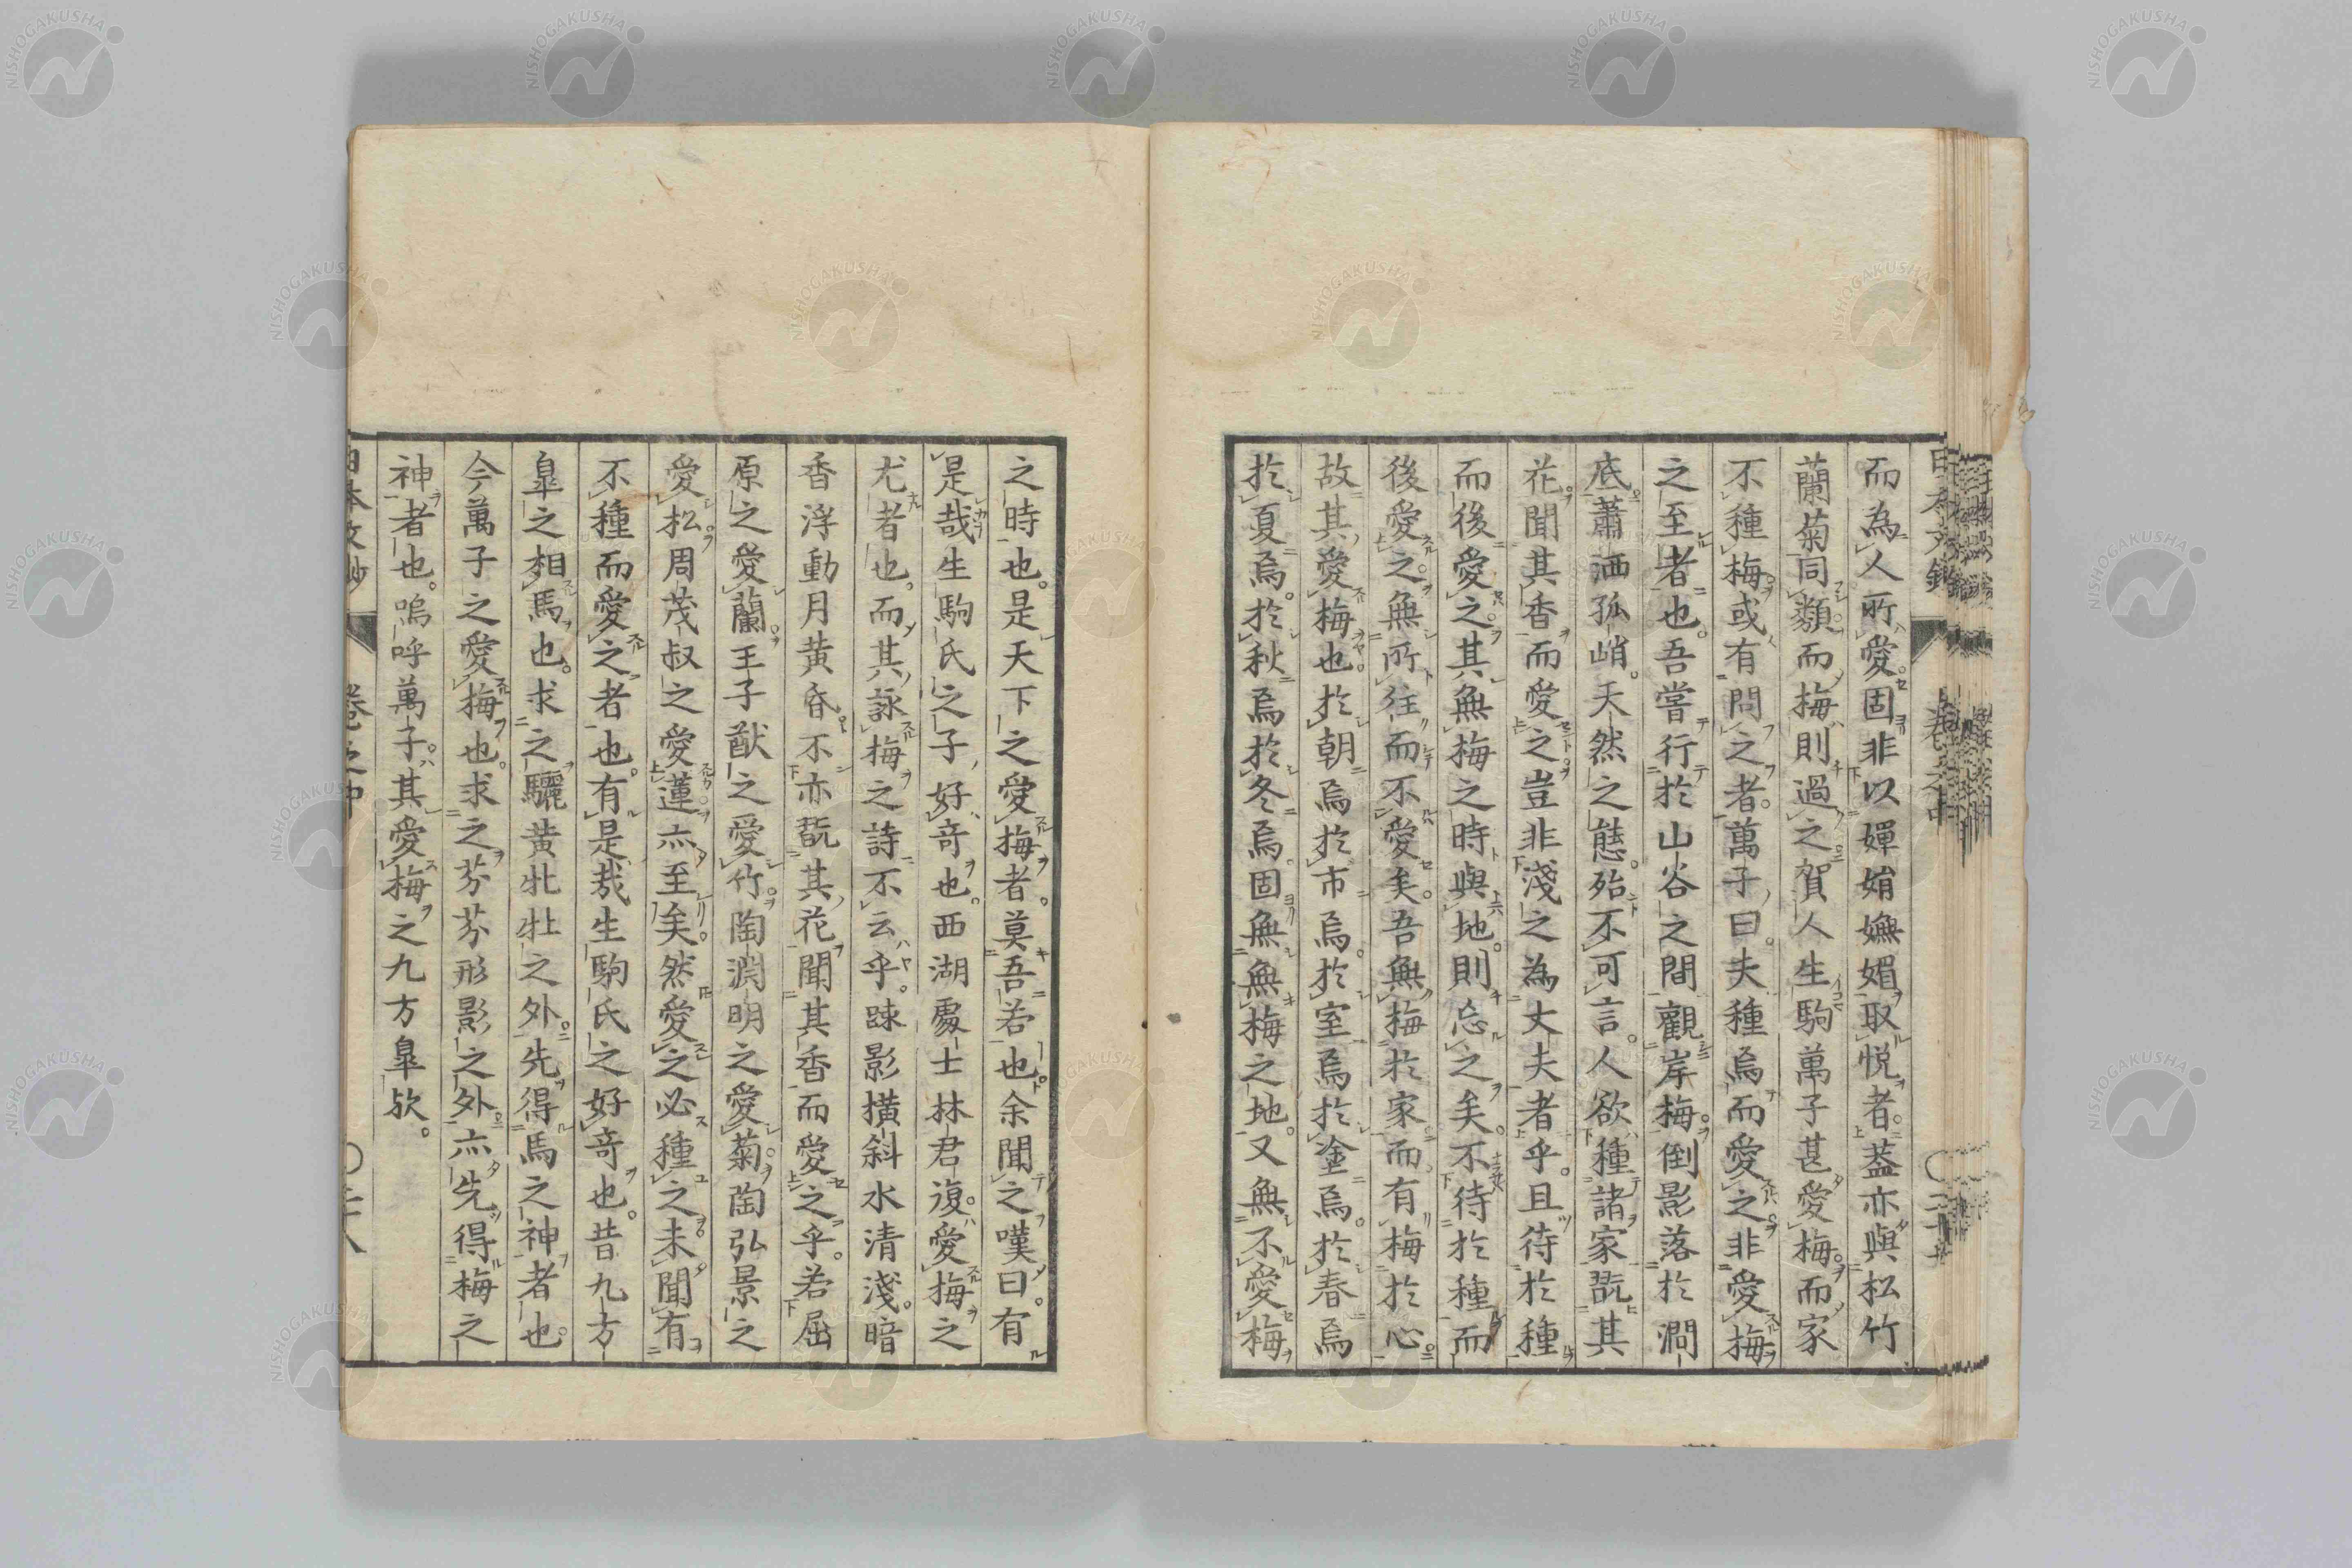 而為人所愛固非以嬋娟嫵媚取悦者蓋亦與松竹
蘭菊同類而梅則過之賀人生駒萬子甚愛梅而家
不種梅或有問之者萬子曰夫種焉而愛之非愛梅
之至者也吾嘗行於山谷之間觀岸梅倒影落於澗
底蕭洒孤峭天然之態殆不可言人欲種諸家翫其
花聞其香而愛之豈非淺之為丈夫者乎且待於種
而後愛之其無梅之時與地則忘之矣不待於種而
後愛之無所往而不愛矣吾無梅於家而有梅於心
故其愛梅也於朝焉於市焉於室焉於塗焉於春焉
於夏焉於秋焉於冬焉固無無梅之地又無不愛梅
之時也是天下之愛梅者莫吾若也余聞之嘆曰有
是哉生駒氏之子好奇也西湖處士林君復愛梅之
尤者也而其詠梅之詩不云乎踈影橫斜水清淺暗
香浮動月黄昏不亦翫其花聞其香而愛之乎若屈
原之愛蘭王子猷之愛竹陶淵明之愛菊陶弘景之
愛松周茂叔之愛蓮亦至矣然愛之必種之未聞有
不種而愛之者也有是哉生駒氏之好奇也昔九方
皐之相馬也求之驪黄牝牡之外先得馬之神者也
今萬子之愛梅也求之芬芬形影之外亦先得梅之
神者也嗚呼萬子其愛梅之九方皐欤
NISHOGAKUSHA